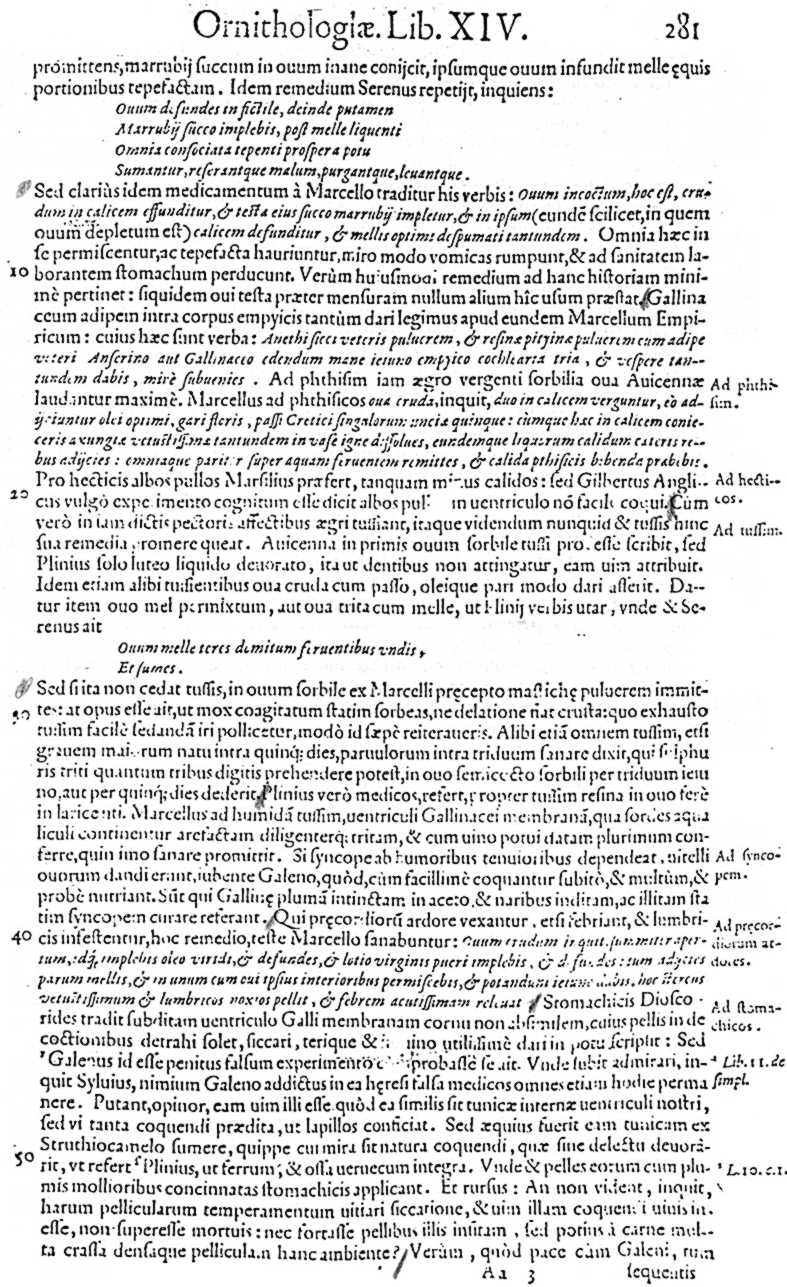 Ornithologiæ. Lib. XIV. 281
promittens, marrubij succum in ouum inane conijcit, ipsumque ouum infundit melle ęquis
portionibus tepefactam. Idem remedium Serenus repetijt, inquiens:
Ouum defundes in fictile, deinde putamen
Marrubij succo implebis, post melle liquenti
Omnia consociata tepenti prospera potu
Sumantur, reserantque malum, purgantque, leuantque.
Sed clariùs idem medicamentum à Marcello traditur his verbis: Ouum incoctum, hoc est, cru-
dum in calicem effunditur, & testa eius succo marrubij impletur, & in ipsum (eundē scilicet, in quem
ouum depletum est) calicem defunditur, & mellis optime despumati tantundem. Omnia hæc in
se permiscentur, ac tepefacta hauriuntur, miro modo vomicas rumpunt, & ad sanitatem la-
10 borantem stomachum perducunt. Verùm huiusmodi remedium ad hanc historiam mini-
mè pertinet: siquidem oui testa præter mensuram nullum alium hîc usum præstat. Gallina
ceum adipem intra corpus empyicis tantùm dari legimus apud eundem Marcellum Empi-
ricum: cuius hæc sunt verba: Anethi sicci veteris puluerem, & resinæ pityinæ puluerem cum adipe
veteri Anserino aut Gallinaceo edendum mane ieiuno empyico cochlearia tria, & vespere tan-
tundem dabis, mirè subuenies. Ad phthisim iam ægro vergenti sorbilia oua Auicennæ
laudantur maximè. Marcellus ad phthisicos oua cruda, inquit, duo in calicem verguntur, eò ad- Ad phthi-
ijciuntur olei optimi, gari floris, passi Cretici singolorum unciæ quinque: cùmque hæc in calicem conie- sim.
ceris axungiæ vetustissimæ tantundem in vase igne dissolues, eundemque liquorum calidum cæteris re-
bus adijcies: omniaque pariter super aquam feruentem remittes, & calida pthisicis bibenda præbebis.
Pro hecticis albos pullos Marsilius præfert, tanquam minus calidos: sed Gilbertus Angli- Ad hecti-
20 cus vulgò experimento cognitum esse dicit albos in uentriculo nō facile coqui. Cùm cos.
verò in iam dictis pectoris affectibus ægri tussiant, itaque videndum nunquid & tussis hinc
sua remedia promere queat. Auicenna in primis ouum sorbile tussi prodesse scribit, sed Ad tussim.
Plinius solo luteo liquido deuorato, ita ut dentibus non attingatur, eam uim attribuit.
Idem etiam alibi tussientibus oua cruda cum passo, oleique pari modo dari asserit. Da-
tur item ouo mel permixtum, aut oua trita cum melle, ut Plinij verbis utar, vnde & Se-
renus ait
Ouum melle teres demitum feruentibus vndis,
Et sumes.
Sed si ita non cedat tussis, in ouum sorbile ex Marcelli pręcepto mastichę puluerem immit-
30 tendum opus esse ait, ut mox coagitatum statim sorbeas, ne delatione fiat crusta: quo exhausto
tussim facilè sedandā iri pollicetur, modò id sæpè reiteraueris. Alibi etiā omnem tussim, etsi
grauem maiorum natu intra quinq; dies, paruulorum intra triduum sanare dixit, qui sulphu
ris triti quantum tribus digitis prehendere potest, in ouo semicocto sorbili per triduum ieiu
no, aut per quinq; dies dederit. Plinius verò medicos, refert, propter tussim resina in ouo ferè
Marcellus ad humidā tussim, uentriculi Gallinacei membranā, qua sordes aqua
liculi continentur arefactam diligenterq; tritam, & cum uino potui datam plurimum con-
ferre, quin imo sanare promittit. Si syncope ab humoribus tenuioribus dependeat, uitelli Ad synco-
ouorum dandi erant, iubente Galeno, quòd, cùm facillimè coquantur subitò, & multùm, & pem.
probè nutriant. Sūt qui Gallinę plumā intinctam in aceto, & naribus inditam, ac illitam sta
tim syncopem curare referant. Qui pręcordiorū ardore vexantur, etsi febriant, & lumbri- Ad pręcor-
40 cis infestentur, hoc remedio, teste Marcello sanabuntur: Ouum crudum aper- diorum ar-
tum, idq́; implebis oleo viridi, & defundes, & lotio virginis pueri implebis, & defundes: tum adijcies dores.
parum mellis, & in unum cum oui ipsius interioribus permiscebis, & potandum ieiuno dabis. hoc stercus
vetustissimum & lumbricos noxios pellit, & febrem acutissimam releuat. Stomachicis Diosco- Ad stoma-
rides tradit subditam uentriculo Galli membranam cornu non absimilem, cuius pellis in de chicos.
coctionibus detrahi solet, siccari, terique & uino utilissimè dari in potu scripsit: Sed
Galenus id esse penitus falsum experimento comprobasse se ait. Vnde subit admirari, in- Lib. 11. de
quit Syluius, nimium Galeno addictus in ea hęresi falsa medicos omnes etiam hodie perma simpl.
nere. Putant, opinor, eam uim illi esse quòd ea similis sit tunicæ internæ uentriculi nostri,
sed vi tanta coquendi prædita, ut lapillos conficiat. Sed æquius fuerit eam tunicam ex
Struthiocamelo sumere, quippe cui mira sit natura coquendi, quæ sine delectu deuorâ-
50 rit, vt refert Plinius, ut ferrum, & ossa ueruecum integra. Vnde & pelles eorum cum plu- L. 10. c. 1.
mis mollioribus concinnatas stomachicis applicant. Et rursus: An non vident, inquit,
harum pellicularum temperamentum uitiari siccatione, & uim illam coquendi uiuis in-
esse, non superesse mortuis: nec fortasse pellibus illis insitam, sed potius à carne mul-
ta crassa densaque pelliculam hanc ambiente? Verùm, quòd pace cùm Galeni, tum
Aa 3 sequentis